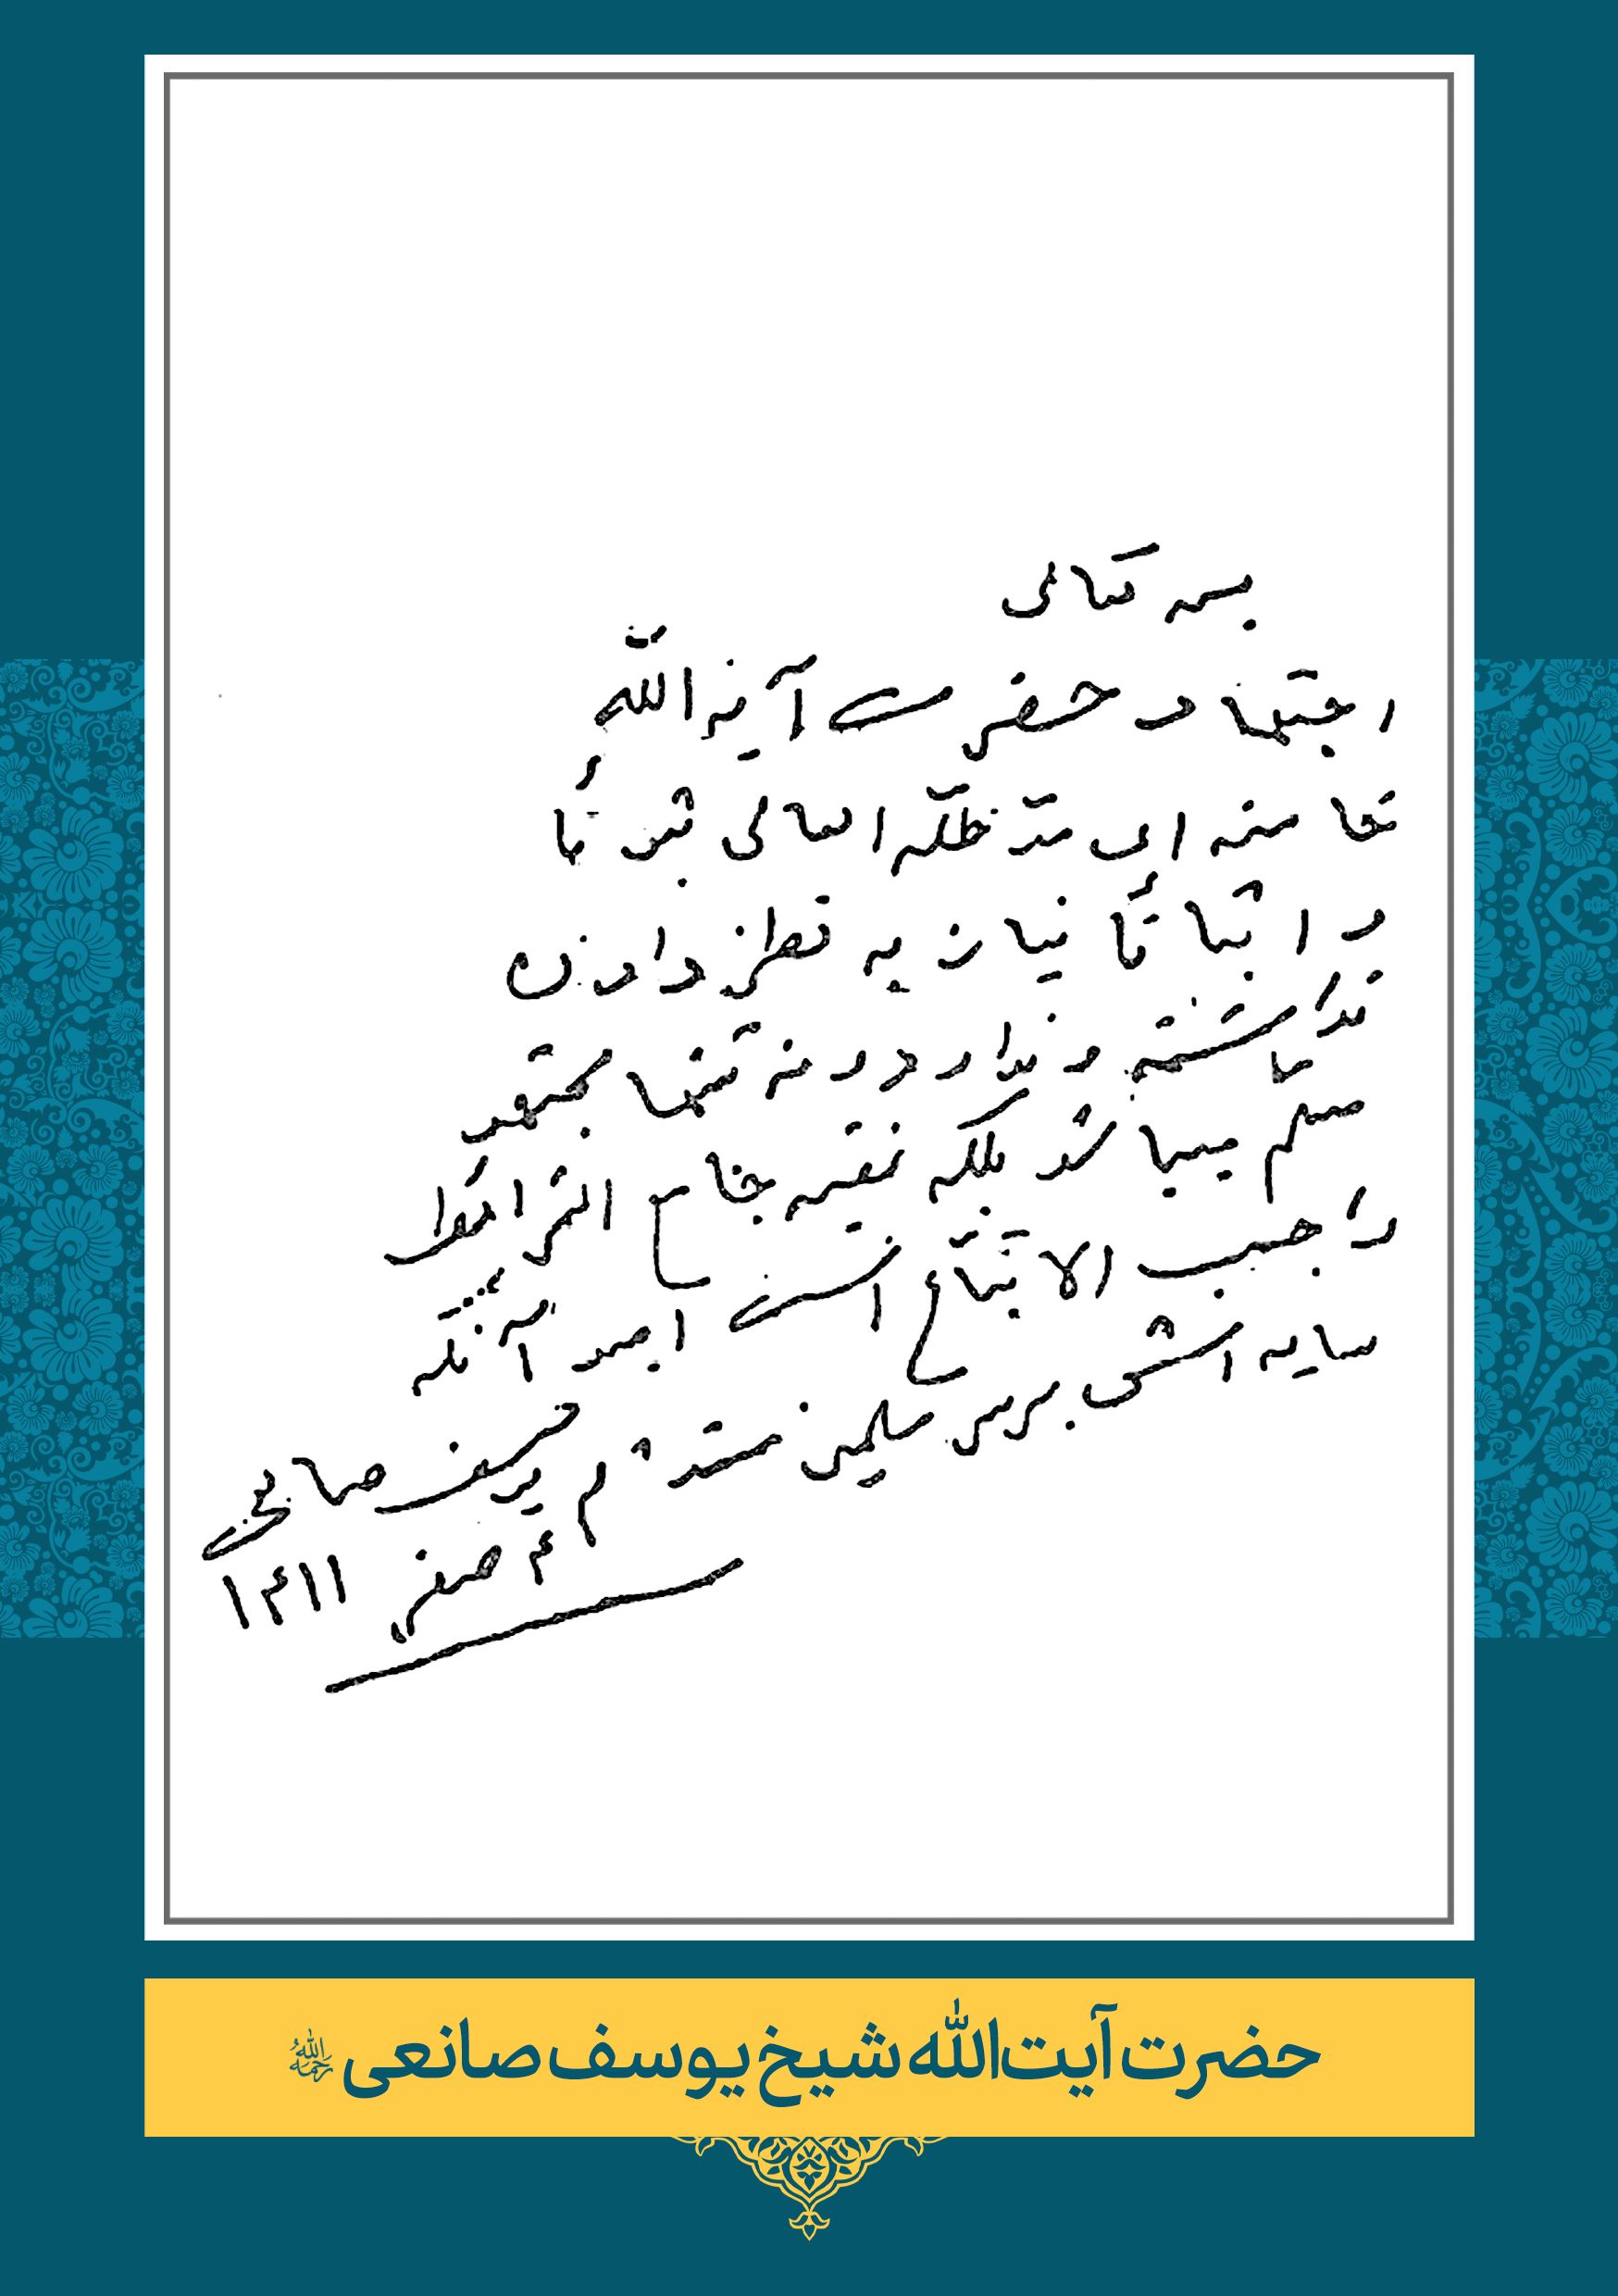 بسمه تعالی
اجتهاد حضرت آیة الله
خامنه ای مدّ ظلّه العالی ثبوتاً
و اثباتاً نیاز به نظر دادن
نداشته و ندارد و نه تنها مجتهد
مسلم میباشد بلکه فقیه جامع الشرائط
واجب الاتّباع است امید آنکه
سایه اش بر سر مسلمین مستدام یوسف صانعی
۴ صفر ۱۴۱۱
حضرت آیت‌الله شیخ یوسف صانعی رحمه‌الله